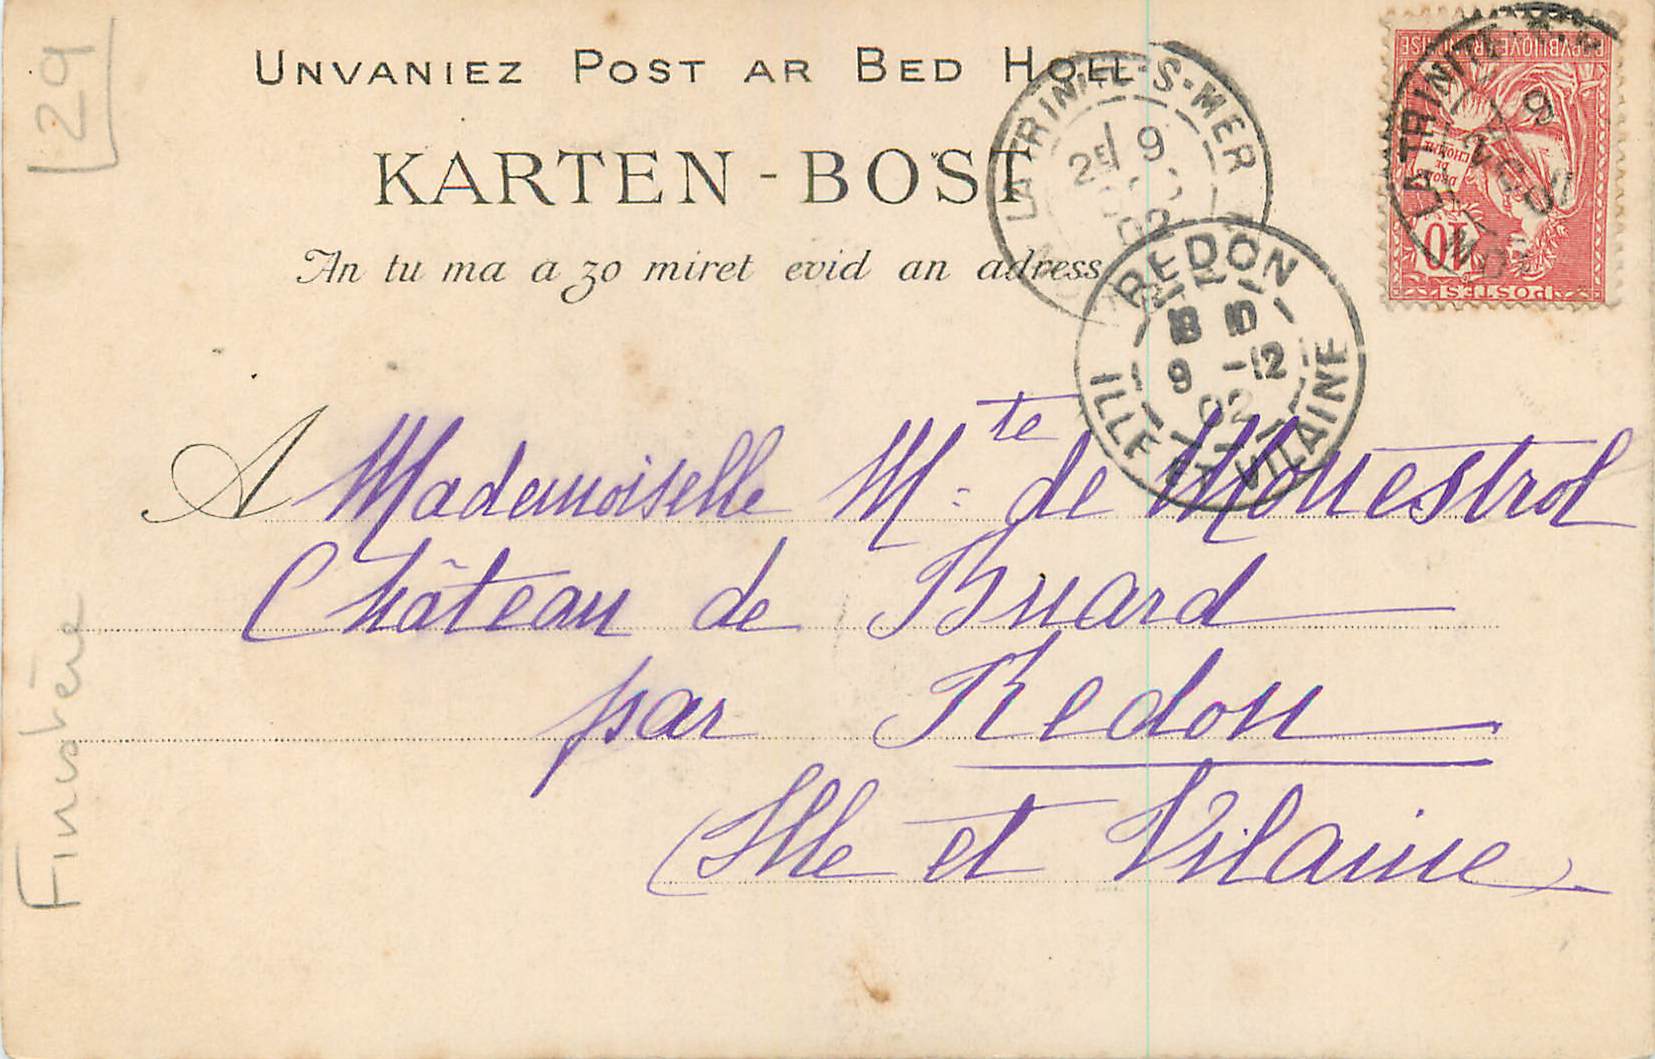 29
UNVANIEZ POST AR BED HOLL
KARTEN-BOST
An tu ma a zo miret evid an adress
LA TRINITE-S-MER
2E 9
02
REDON
9 -12
02
ILLE ET VILAINE
RÉPUBLIQUE FRANÇAISE
DROITS DE L'HOMME
10
POSTES
LA TRINITE
A Mademoiselle Mte de Monestrol
Château de Buard
par Redon
Ille et Vilaine
Finistère